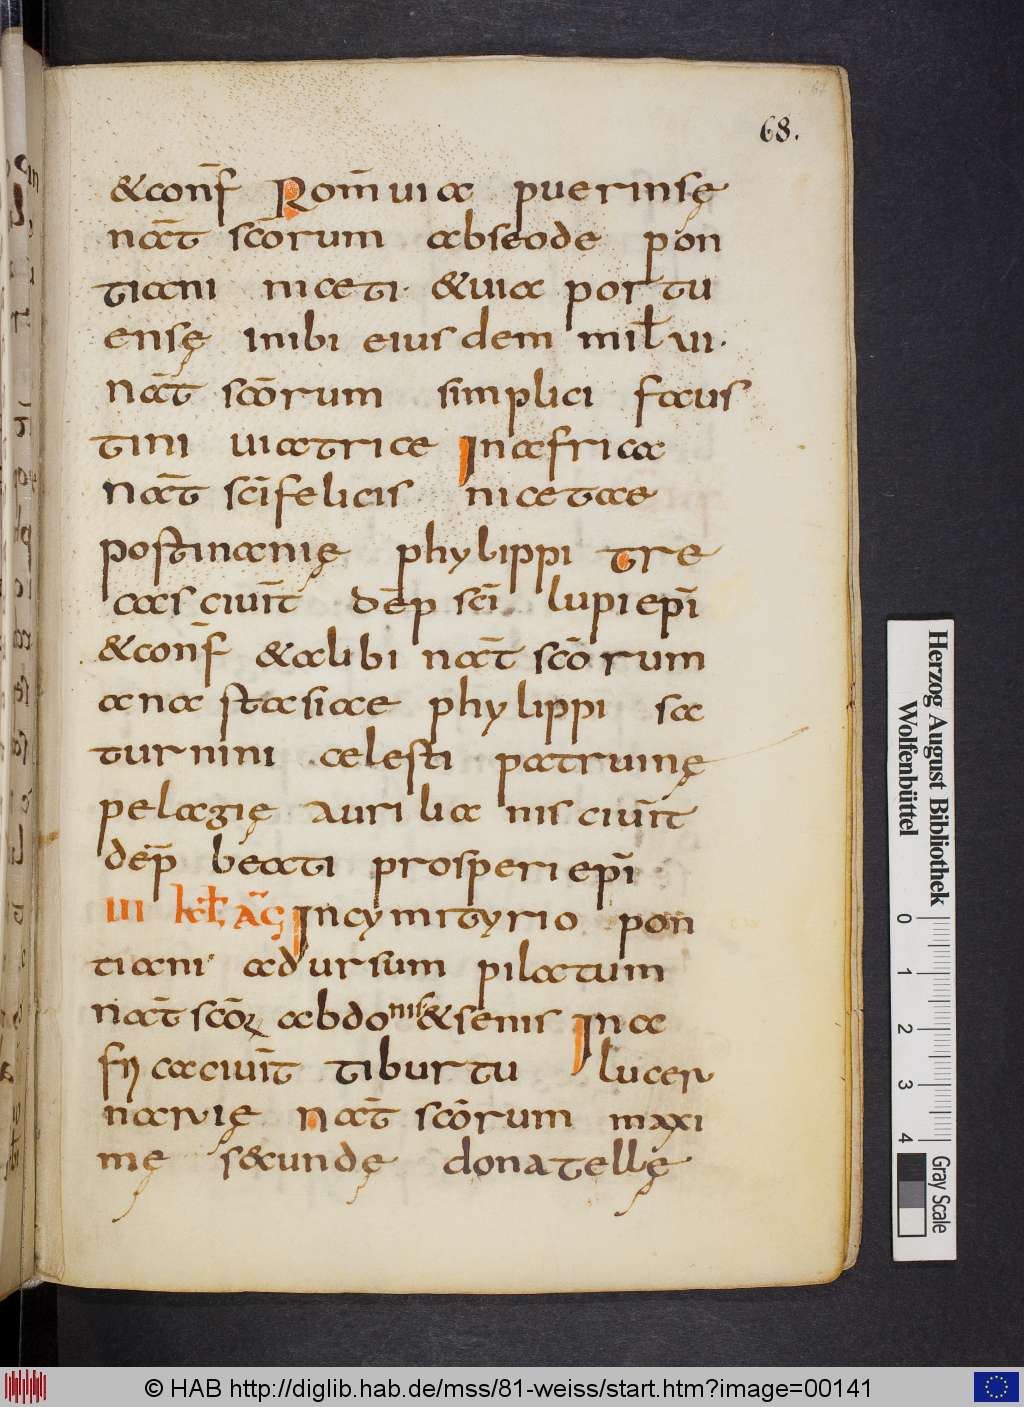 68.
&conf̄ Rom̄ uia puerinsę
nat̄ scōrum abseode pon
tiani niceti· &uia portu
ensę inibi eiusdem mił ui·
Nat̄ scōrum simplici faus
tini uiatrice Inafrica
Nat̄ scīfelicis nicetae
postinanię phylippi tre
cascīuit̄ dēp scī lupi epī
&conf̄ &alibi nat̄ scōrum
anastasiae phylippi sa
turnini celesti patruinę
pelagię aurilianisciuit̄
dep̄ beati prosperi epī
III kł aḡ Incymityrio pon
tiani adursum pilatum
nat̄ scōꝝ abdonis &senis Ina
fricaciuit̄ tiburtu lucer
narię nat̄ scōrum maxi
mę s&cundę donatellę
Herzog August Bibliothek
Wolfenbüttel
0 1 2 3 4
Gray Scale
© HAB http://diglib.hab.de/mss/81-weiss/start.htm?image=00141